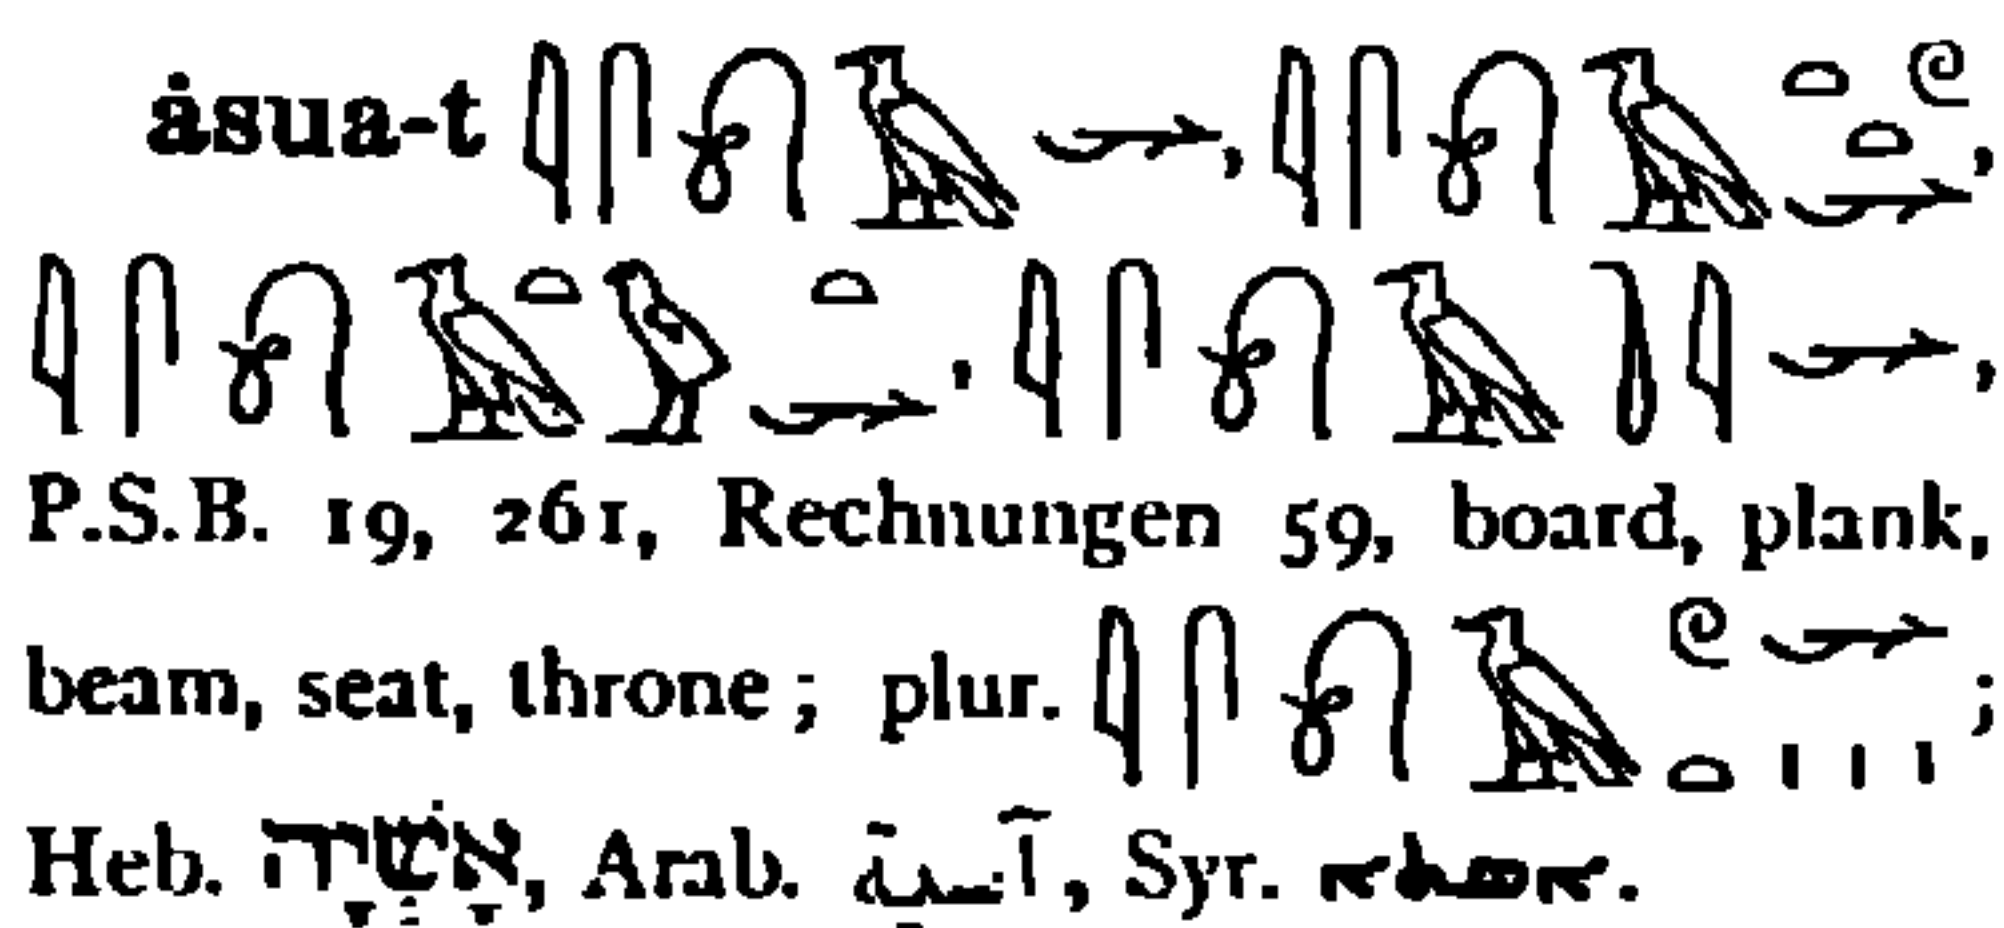 ȧsua-t 𓇋𓋴𓍯𓄿𓆱, 𓇋𓋴𓍯𓄿𓏏𓏲𓏏𓆱,
𓇋𓋴𓍯𓄿𓏏𓅱𓏏𓆱, 𓇋𓋴𓍯𓄿𓍘𓇋𓆱,
P.S.B. 19, 261, Rechnungen 59, board, plank,
beam, seat, throne; plur. 𓇋𓋴𓍯𓄿𓏲𓏏𓆱𓏥;
Heb. אָשְׁיָה, Arab. آسِيَة, Syr.